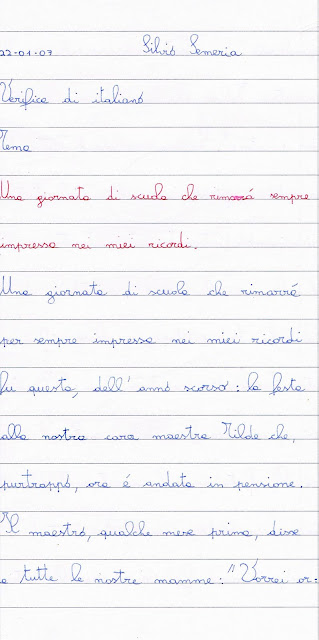 22-01-07 Silvio Semeria
Verifica di italiano
Tema
Una giornata di scuola che rimarrá sempre
impressa nei miei ricordi.
Una giornata di scuola che rimarrá
per sempre impressa nei miei ricordi
fu questa, dell'anno scorso: la festa
alla nostra cara maestra Tilde che,
purtrappo, ora é andata in pensione.
Il maestro, qualche mese prima, disse
a tutte le nostre mamme: "Vorrei or: